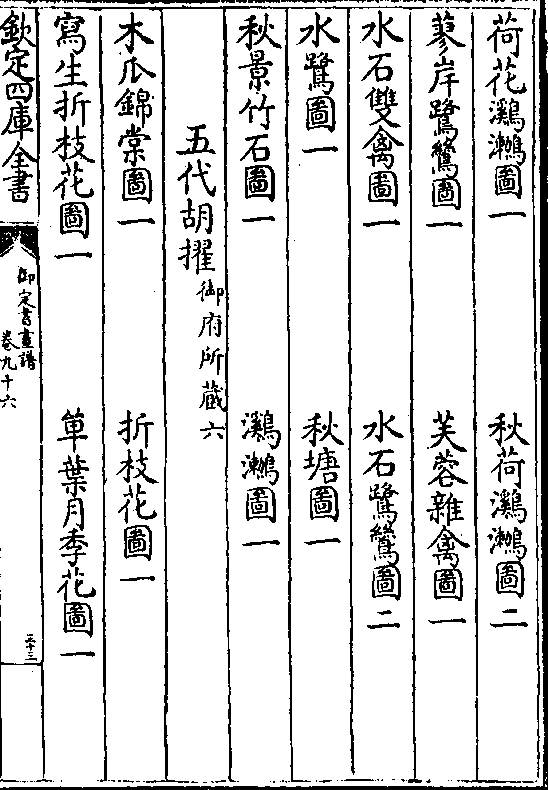 荷花鸂鶒圖一　秋荷鸂鶒圖二
蓼岸鷺鷥圖一　芙蓉雜禽圖一
水石雙禽圖一　水石鷺鷥圖二
水鷺圖一　秋塘圖一
秋景竹石圖一　鸂鶒圖一
五代胡擢御府所藏六
木瓜錦棠圖一　折枝花圖一
寫生折枝花圖一　單葉月季花圖一
欽定四庫全書　御定書畫譜　卷九十六　三十三